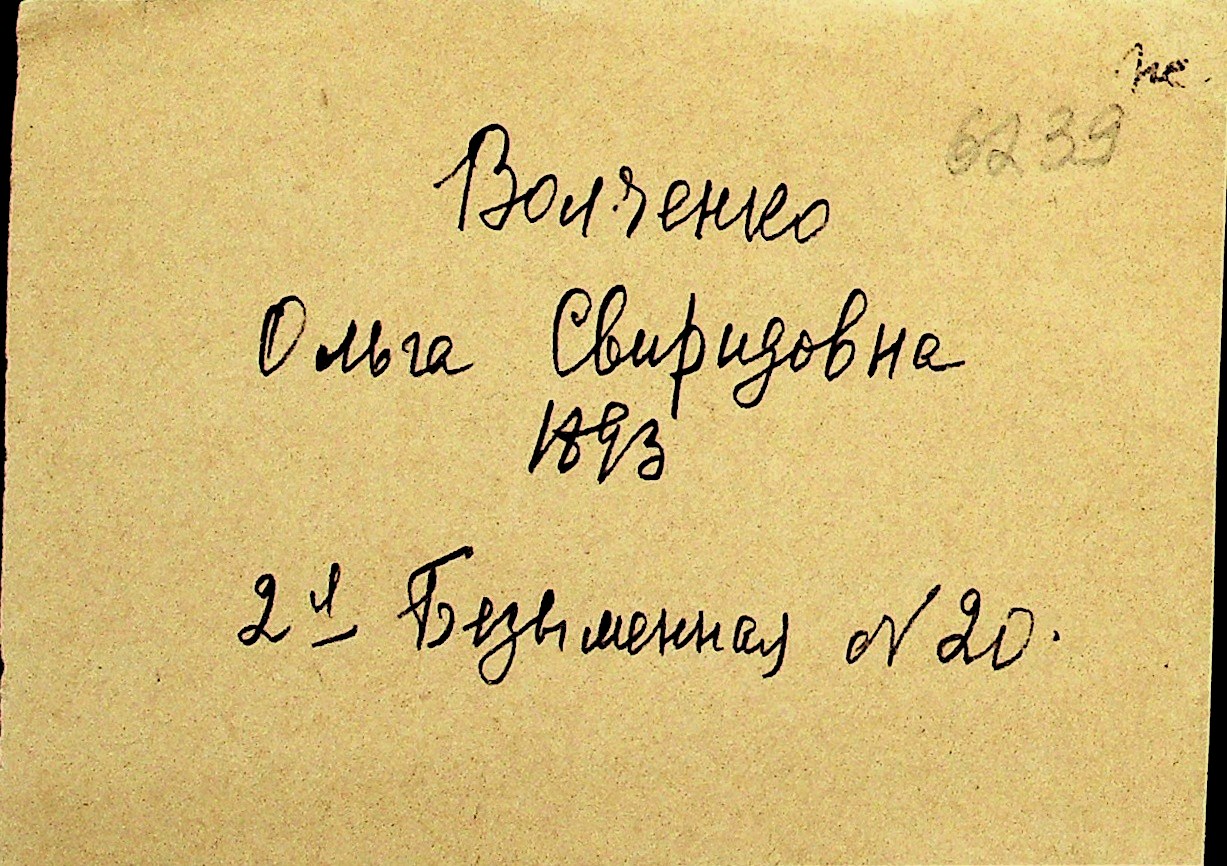 6239
Волченко
Ольга Свиридовна
1893
2я Безыменная N 20.